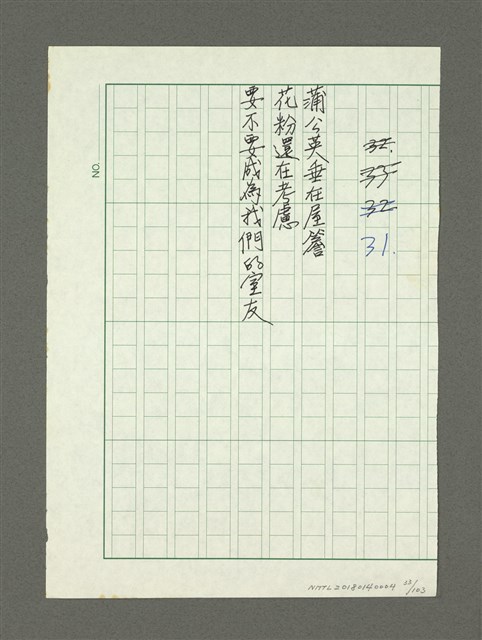 31.
蒲公英垂在屋簷
花粉還在考慮
要不要成為我們的室友
NO.
NMTL20180140004 32/103